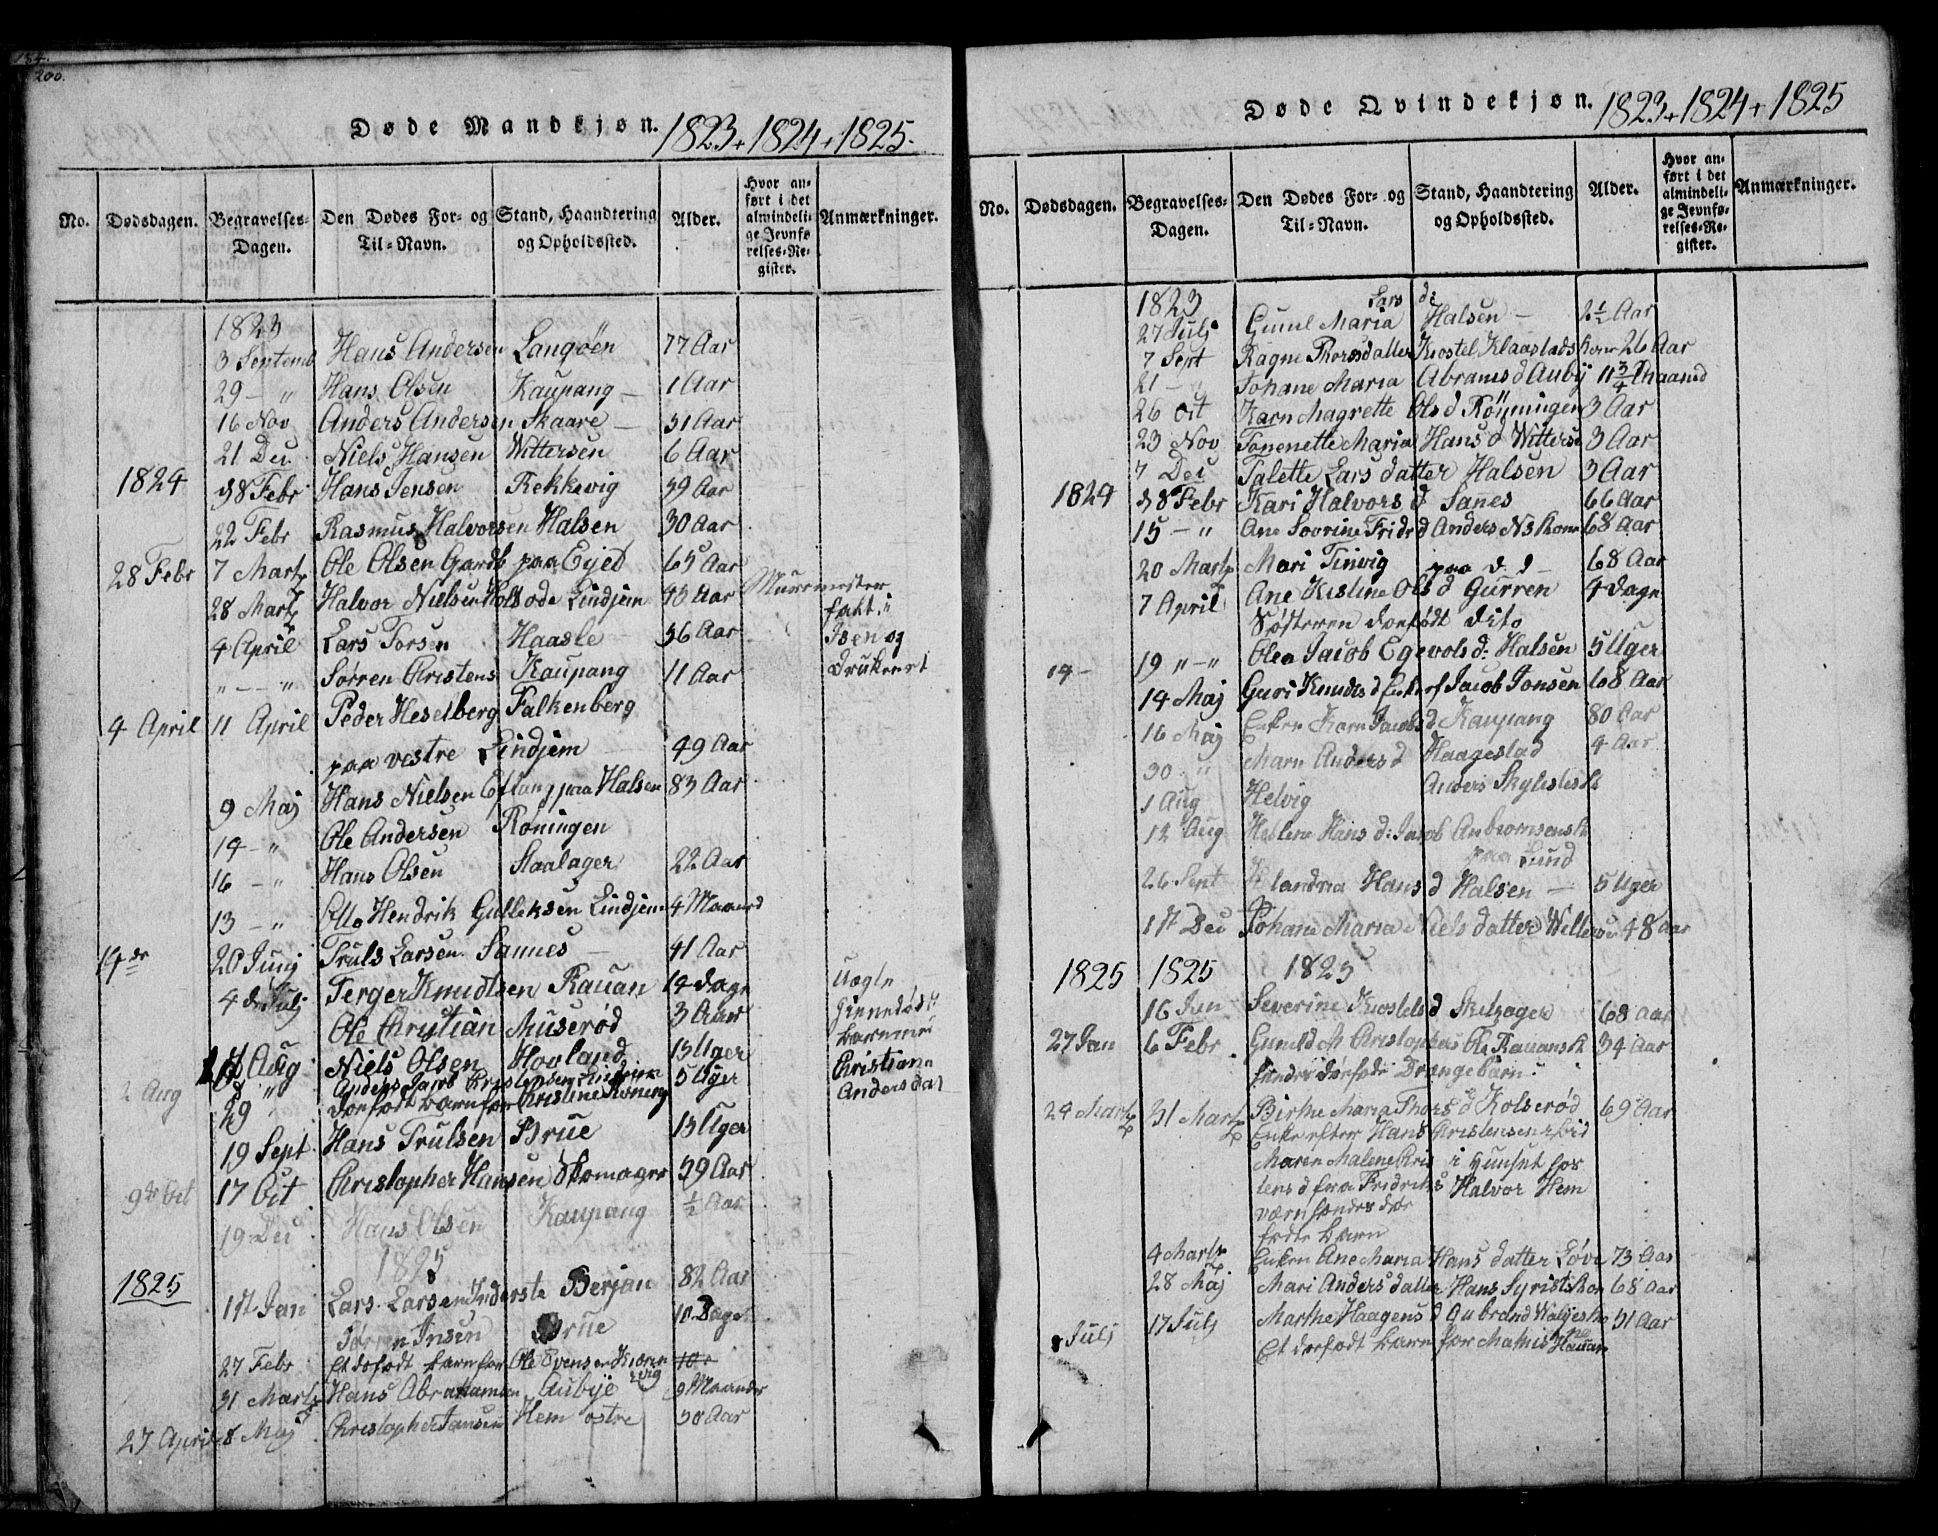 184.
200.
Døde Mandkjøn. 1823 + 1824 + 1825.
No. Dødsdagen. Begravelses-Dagen. Den Dødes For- og Til-Navn. Stand, Haandtering og Opholdssted. Alder. Hvor anført i det almindelige Jevnførelses-Register. Anmærkninger.
1823
3 Septemb Hans Andersen Langöen 77 Aar
29 - " Hans Olsen Kaupang - 1 Aar
16 Nov Anders Andersen Skaare - 31 Aar
21 Dec Niels Hansen Wittersen 6 Aar
1824 8 Febr Hans Jensen Rekkevig 39 Aar
22 Febr Rasmus Halvorsen Halsen 30 Aar
28 Febr 7 Marts Ole Olsen paa Eyed 65 Aar
28 Marts Halvor Nielsen Lindjem 43 Aar Murmester
4 April Lars Torsen Haasle 36 Aar Isen og
" - - " Sørren Christens Kaupang 11 Aar Druknet
4 April 11 April Peder Heselberg Falkenberg
paa vestre Lindjem 49 Aar
9 Maj Hans Nielsen Eftang paa Halsen 83 Aar
14 - " Ole Andersen Roningen
16 - " Hans Olsen Staalager 22 Aar
13 - " Hendrik Gulleksen Lindjem 4 Maaned
14de 20 Junij Truls Larsen Sannes - 41 Aar
4 Julj Terger Knudtsen Rauan 14 dage Uægte
Ole Christian Muserød 3 Aar
Aug Niels Olsen Hovland 13 Uger Christiane
2 Aug Anders Jacob Christensen 5 Uger Andersdat
29 dødfødt barn for Christine
19 Sept Hans Trulsen Brue 13 Uger
9de Oct 17 Oct Christopher Hansen Skomager 39 Aar
19 Dec Hans Olsen Kaupang ½ Aar
1825
1825 1st Jan Lars Larsen Inderste Berjan 82 Aar
Sørren Jnsen Brue 10 Dage
27 Febr Et døfødt barn for Ole Evensen
31 Marts Hans Abrahamsen Aubye 9 Maander
27 April 8 Maj Christopher Jansen Hem østre 30 Aar
Døde Qvindekjøn. 1823 + 1824 + 1825
No. Dødsdagen. Begravelses-Dagen. Den Dødes For- og Til-Navn. Stand, Haandtering og Opholdssted. Alder. Hvor anført i det almindelige Jevnførelses-Register. Anmærkninger.
1823 Lars d:
27 Julj Gunil Maria Halsen - 2½ Aar
7 Sept Ragne Thorsdatter Kostel Klaastads kone 26 Aar
21 - " Johane Maria Abrams d Auby 11¾ Maaned
26 Oct Karn Magrette Ols d Röyningen 3 Aar
23 Nov Tonenette Maria Hans d Witterse 3 Aar
7 Dec Talette Lars datter Halsen 3 Aar
1824 8 Febr Kari Halvors d Sanes 66 Aar
15 - " Ane Sovrine Fridr d Anders Ns Kone 68 Aar
20 Marts Mari Tinvig paa d d 68 Aar
7 April Ane Kistine Ols d Gurren 4 dage
Søsteren dødfødt Dito
14 - 19 " - " Olea Jacob Egevols d: Halsen 5 Uger
14 Maj Guri Knudts d Enke ef Jacob Jonsen 68 Aar
16 Maj Enken Karn Jacobs d Kaupang 80 Aar
30 " Marn Anders d Haagestad 4 Aar
1 Aug Helvig Anders
12 Aug Hellene Hans d: Jacob
paa Lund
26 Sept Hans d Halsen - 5 Uger
1st Dec Johane Maria Niels datter 48 Aar
1825 1825 1825
16 Jan Severine Kostels d 68 Aar
27 Jan 6 Febr Gunild M Christophers Ole Rauans k 34 Aar
hendes dødfødte Drængebarn
24 Marts 31 Marts Birthe Maria Thors d Kolserød 69 Aar
Enke efter Hans Christensen
Maren Malene Chris i Hunset hos
tens d fra Fridriks Halvor Hem
værn hendes død
fødte barn
4 Marts Enken Ane Maria Hans datter Løve 73 Aar
28 Maj Mari Anders datter Hans Syrist kon 68 Aar
Julj 17 Julj Marthe Haagens d Gubrand 31 Aar
Et døfødt barn for Mathis Hauan